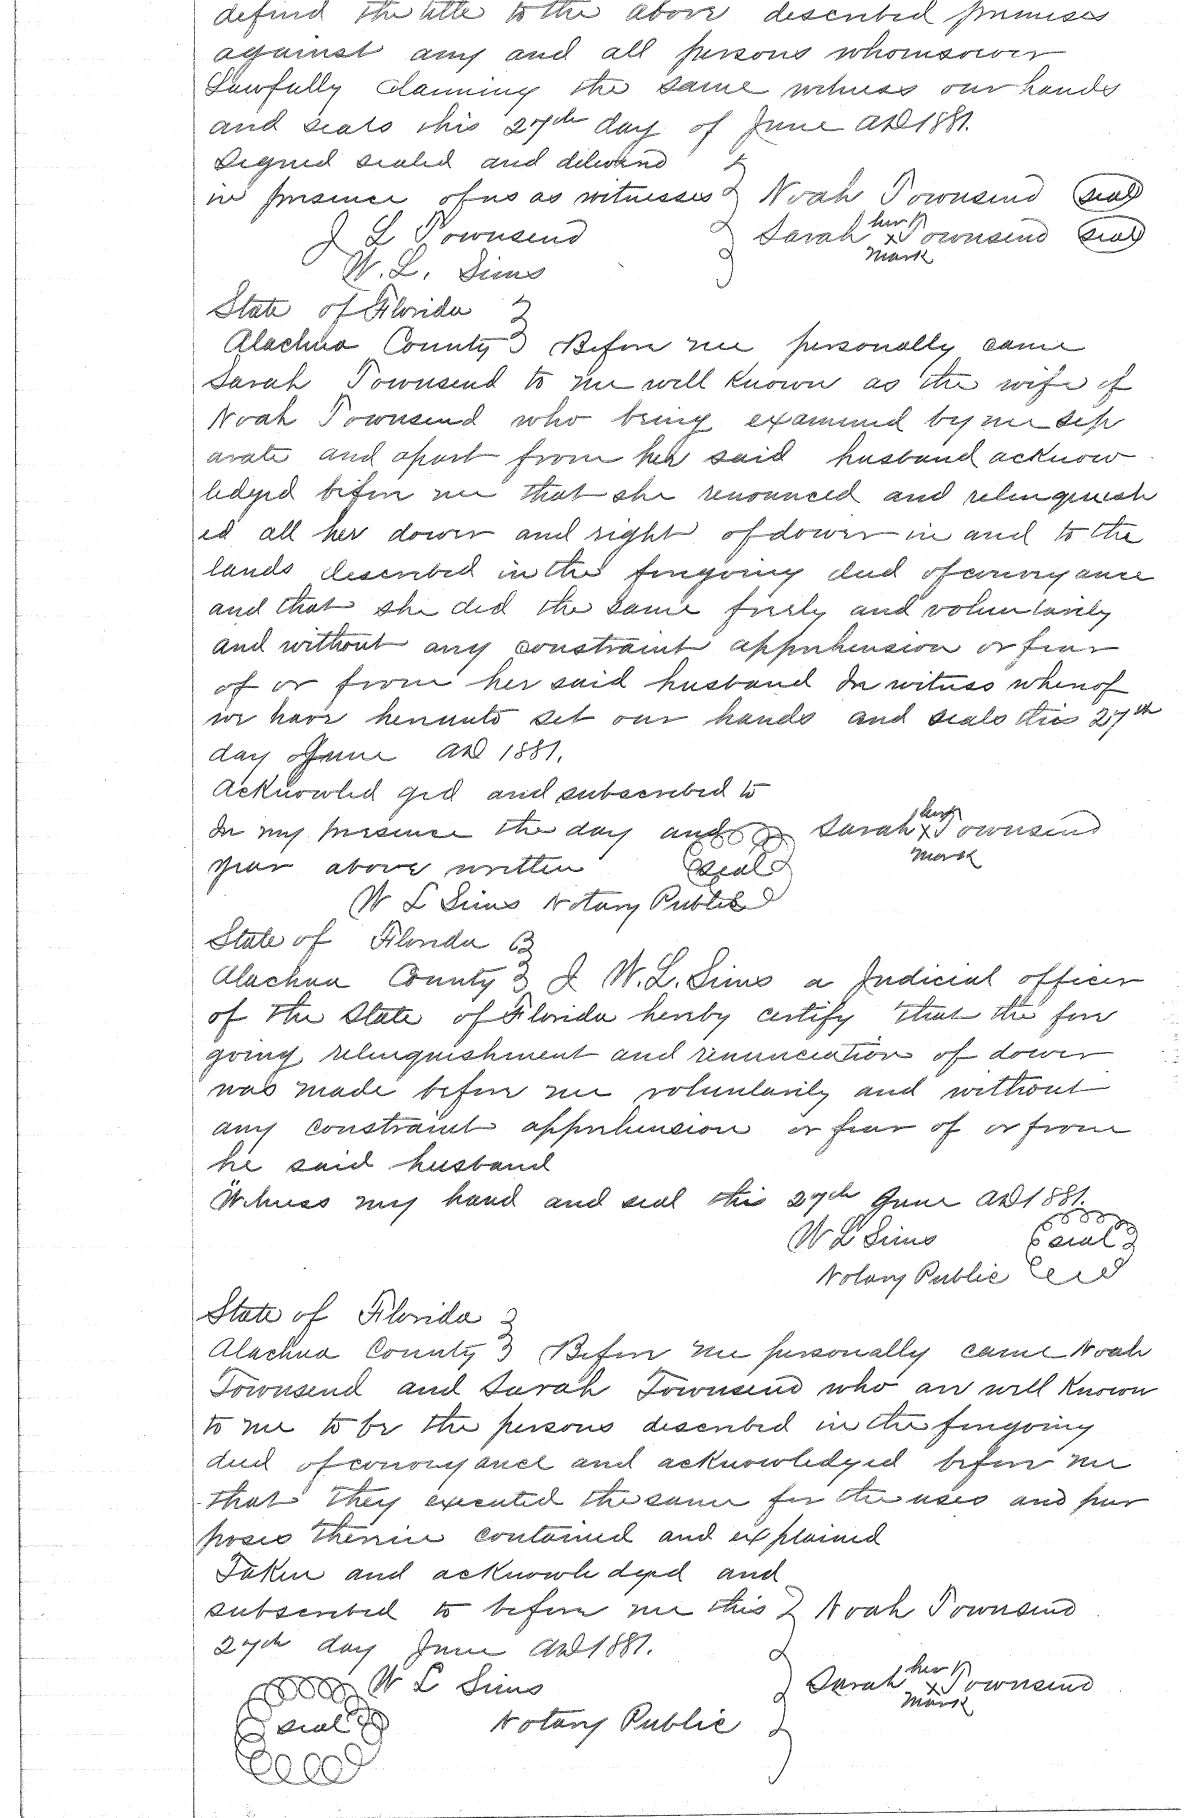 defend the title to the above described premises
against any and all persons whomsoever
Lawfully claiming the same witness our hands
and seals this 27th day of June AD 1881.
Signed sealed and delivered
in presence of us as witnesses Noah Townsend seal
J L Townsend Sarah her x mark Townsend seal
W. L. Sims
State of Florida
Alachua County Before me personally came
Sarah Townsend to me well known as the wife of
Noah Townsend who being examined by me sep
arate and apart from her said husband acknow
ledged before me that she renounced and relinquish
ed all her dower and right of dower in and to the
lands described in the foregoing deed of conveyance
and that she did the same freely and voluntarily
and without any constraint apprehension or fear
of or from her said husband In witness whereof
we have hereunto set our hands and seals this 27th
day of June AD 1881.
Acknowled ged and subscribed to
In my presence the day and Sarah her x mark Townsend
year above written seal
W L Sims Notary Public
State of Florida
Alachua County I W. L. Sims a Judicial officer
of the State of Florida hereby certify that the fore
going relinquishment and renunciation of dower
was made before me voluntarily and without
any constraint apprehension or fear of or from
he said husband
Witness my hand and seal this 27th June AD 1881.
W L Sims seal
Notary Public
State of Florida
Alachua County Before me personally came Noah
Townsend and Sarah Townsend who are well known
to me to be the persons described in the foregoing
deed of conveyance and acknowledged before me
that they executed the same for the uses and pur
poses therein contained and explained
Taken and acknowledged and
subscribed to before me this Noah Townsend
27th day June AD 1881.
W L Sims Sarah her x mark Townsend
seal Notary Public